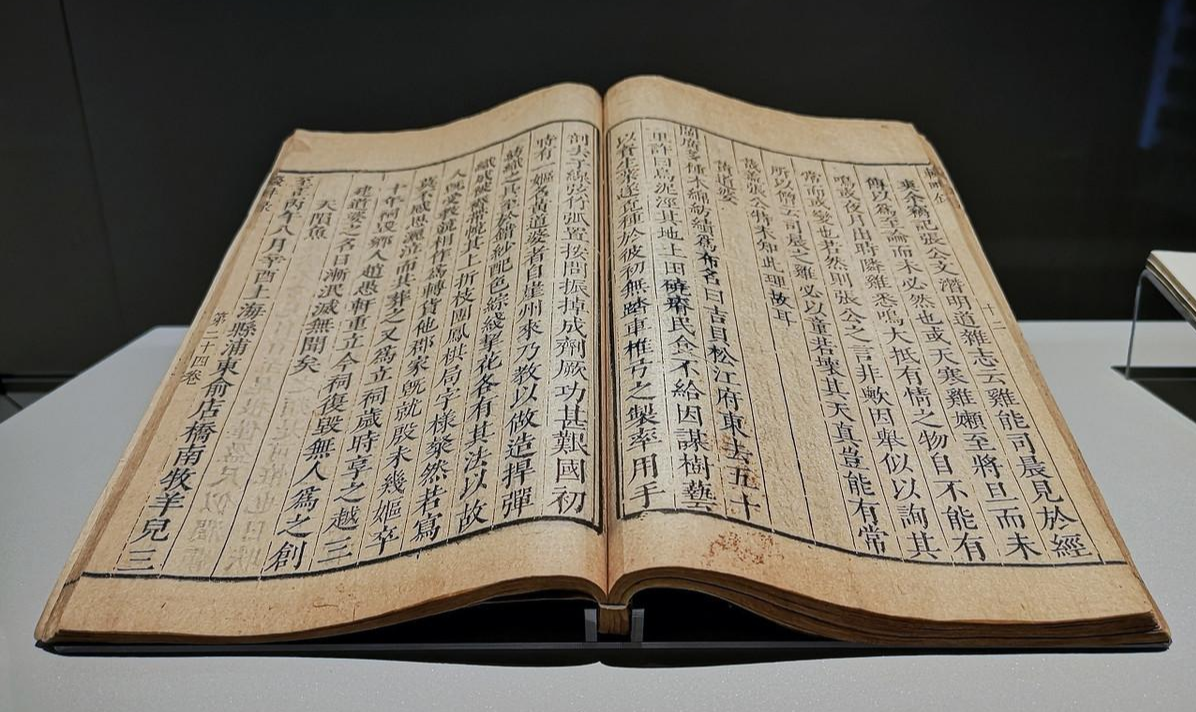 東余記張公文潛明道雜志云雞能司晨見於經
傳以爲至論而未必然也或天寒雞懶至將旦而未
鳴或夜月出時隣雞悉鳴大抵有情之物自不能有
常而或變也若然則張公之言非歟因與似以詢其
所以僧云司晨之雞必以童若壞其天真豈能有常
哉蓋張公特未知此理故耳
黃道婆
閩廣多種木綿紡績爲布名曰吉貝松江府東去五十
里許曰烏泥涇其地土田磽瘠民食不給因謀樹藝
以資生業遂覓種於彼初無踏車椎弓之製率用手
十二
剖去子線弦竹弧置按間振掉成劑厥功甚艱國初
時有一嫗名黃道婆者自崖州來乃教以做造捍彈
紡織之具至於錯紗配色綜綫挈花各有其法以故
織成被褥帶帨其上折枝團鳳棋局字樣粲然若寫
人既受教競相作爲轉貨他郡家既就殷未幾嫗卒
莫不感恩洒泣而共葬之又爲立祠歲時享之越三
十年祠毀鄉人趙愚軒重立今祠復毀無人爲之創
建道婆之名日漸泯滅無聞矣
天隕魚
至正丙午八月辛酉上海縣浦東俞店橋南牧羊兒三
第二十四卷